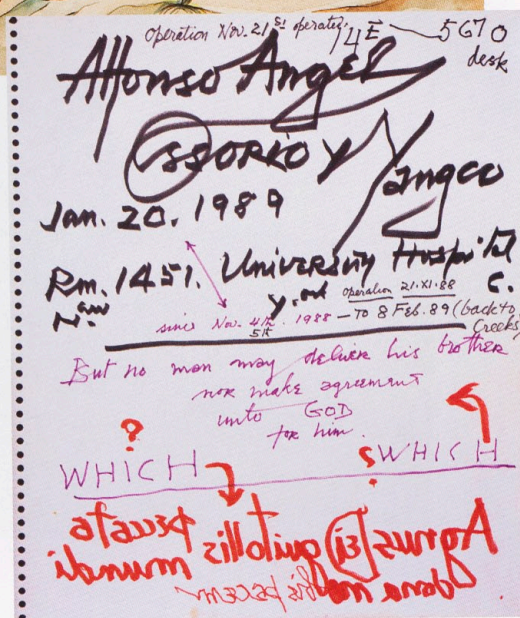 Operation Nov. 21st operates 14E — 5670
desk
Alfonso Angel
Ossorio y Yangco
Jan. 20. 1989
Rm. 1451. University Hospital
New York C.
operation 21.XI.88
since Nov. 4th. 1988 — TO 8 Feb. 89 (back to
5th
Creeks
But no man may deliver his brother
nor make agreement
unto GOD
for him.
?
WHICH
? WHICH
Agnus Dei qui tollis peccata
mundi
dona nobis pacem